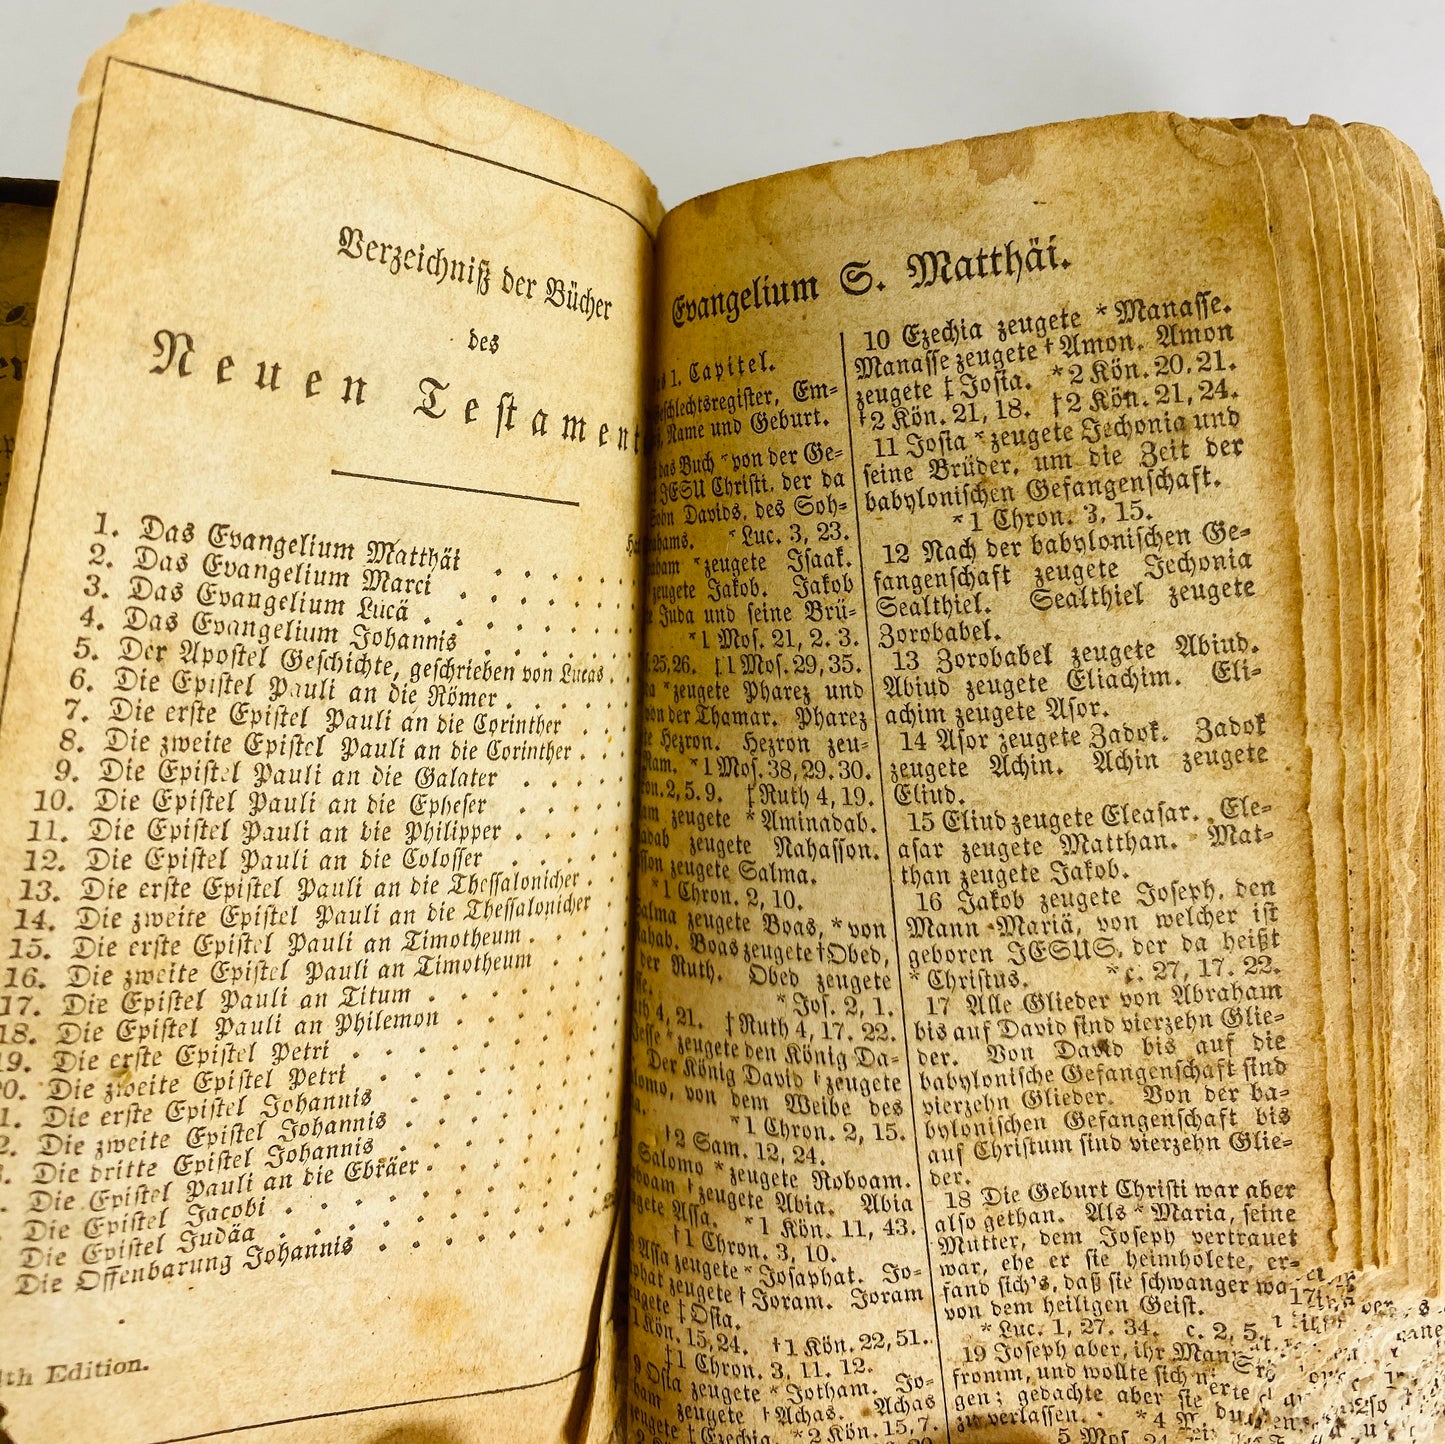 Verzeichniß der Bücher
des
Neuen Testament
1. Das Evangelium Matthäi
2. Das Evangelium Marci
3. Das Evangelium Lucä
4. Das Evangelium Johannis
5. Der Apostel Geschichte, geschrieben von Lucas
6. Die Epistel Pauli an die Römer
7. Die erste Epistel Pauli an die Corinther
8. Die zweite Epistel Pauli an die Corinther
9. Die Epistel Pauli an die Galater
10. Die Epistel Pauli an die Epheser
11. Die Epistel Pauli an die Philipper
12. Die Epistel Pauli an die Colosser
13. Die erste Epistel Pauli an die Thessalonicher
14. Die zweite Epistel Pauli an die Thessalonicher
15. Die erste Epistel Pauli an Timotheum
16. Die zweite Epistel Pauli an Timotheum
17. Die Epistel Pauli an Titum
18. Die Epistel Pauli an Philemon
19. Die erste Epistel Petri
0. Die zweite Epistel Petri
1. Die erste Epistel Johannis
2. Die zweite Epistel Johannis
Die dritte Epistel Johannis
Die Epistel Pauli an die Ebräer
Die Epistel Jacobi
Die Epistel Judäa
Die Offenbarung Johannis
Edition.
Evangelium S. Matthäi.
1. Capitel.
schlechtsregister, Em-
Name und Geburt.
das Buch *von der Ge-
JESU Christi, der da
Sohn Davids, des Soh-
*Luc. 3, 23.
*zeugete Isaak.
zeugete Jakob. Jakob
Juda und seine Brü-
*1 Mos. 21, 2. 3.
25,26. †1 Mos. 29, 35.
*zeugete Pharez und
von der Thamar. Pharez
Hezron. Hezron zeu-
Ram. *1 Mos. 38, 29. 30.
2, 5. 9. †Ruth 4, 19.
zeugete *Aminadab.
zeugete Nahasson.
zeugete Salma.
*1 Chron. 2, 10.
zeugete Boas, *von
Boas zeugete †Obed,
der Ruth. Obed zeugete
*Jos. 2, 1.
4, 21. †Ruth 4, 17. 22.
*zeugete den König Da-
Der König David †zeugete
von dem Weibe des
*1 Chron. 2, 15.
†2 Sam. 12, 24.
Salomo *zeugete Roboam.
†zeugete Abia. Abia
Assa. *1 Kön. 11, 43.
†1 Chron. 3, 10.
Assa zeugete *Josaphat. Jo-
zeugete †Joram. Joram
†Osia.
1 Kön. 15, 24. †1 Kön. 22, 51.
†1 Chron. 3, 11. 12.
Osia zeugete *Jotham. Jo-
zeugete †Achas. Achas
†Ezechia. *2 Kön. 15, 7.
10 Ezechia zeugete *Manasse.
Manasse zeugete †Amon. Amon
zeugete ‡Josia. *2 Kön. 20, 21.
†2 Kön. 21, 18. ‡2 Kön. 21, 24.
11 Josia *zeugete Jechonia und
seine Brüder, um die Zeit der
babylonischen Gefangenschaft.
*1 Chron. 3, 15.
12 Nach der babylonischen Ge-
fangenschaft zeugete Jechonia
Sealthiel. Sealthiel zeugete
Zorobabel.
13 Zorobabel zeugete Abiud.
Abiud zeugete Eliachim. Eli-
achim zeugete Asor.
14 Asor zeugete Zadok. Zadok
zeugete Achin. Achin zeugete
Eliud.
15 Eliud zeugete Eleasar. Ele-
asar zeugete Matthan. Mat-
than zeugete Jakob.
16 Jakob zeugete Joseph, den
Mann Mariä, von welcher ist
geboren JESUS, der da heißt
*Christus. *c. 27, 17. 22.
17 Alle Glieder von Abraham
bis auf David sind vierzehn Glie-
der. Von David bis auf die
babylonische Gefangenschaft sind
vierzehn Glieder. Von der ba-
bylonischen Gefangenschaft bis
auf Christum sind vierzehn Glie-
der.
18 Die Geburt Christi war aber
also gethan. Als *Maria, seine
Mutter, dem Joseph vertrauet
war, ehe er sie heimholete, er-
fand sich's, daß sie schwanger wa
von dem heiligen Geist.
*Luc. 1, 27. 34. c. 2, 5.
19 Joseph aber, ihr Mann
fromm, und wollte sich n
gen; gedachte aber sie
zu verlassen. *4
5 Mos. 24